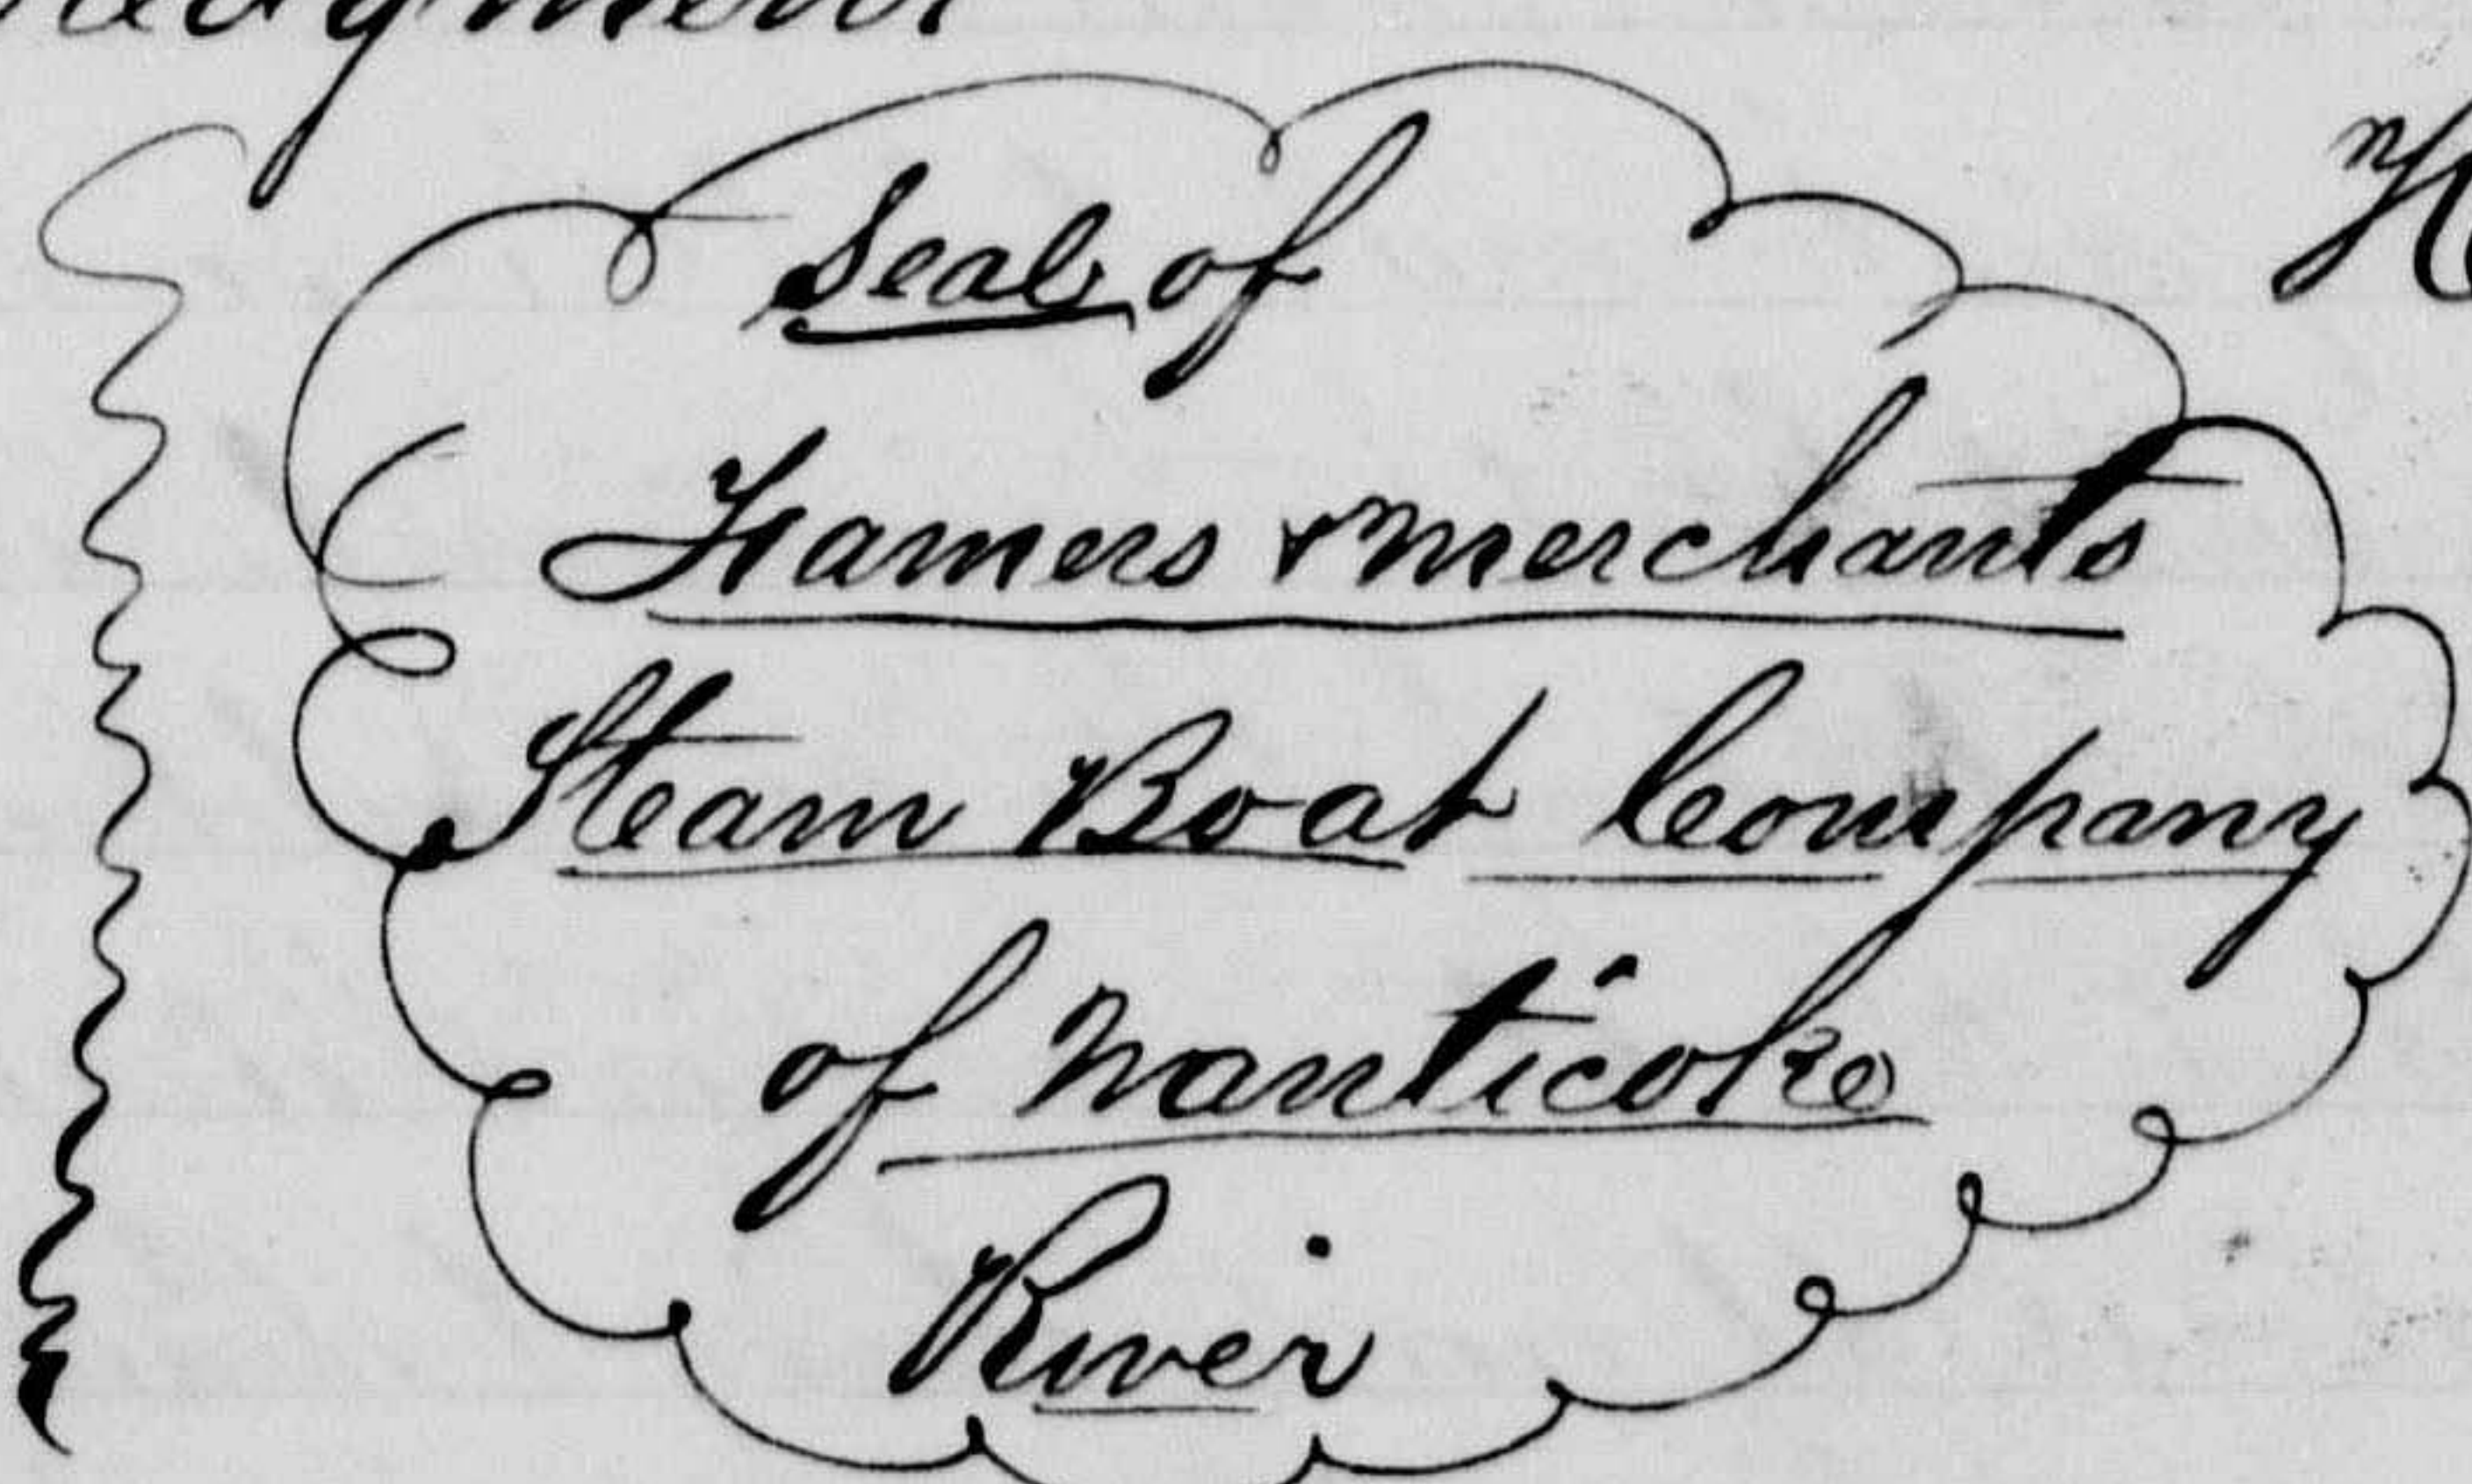 seal of
Framers & Merchants
Steam Boat Company
of Nanticoke
River